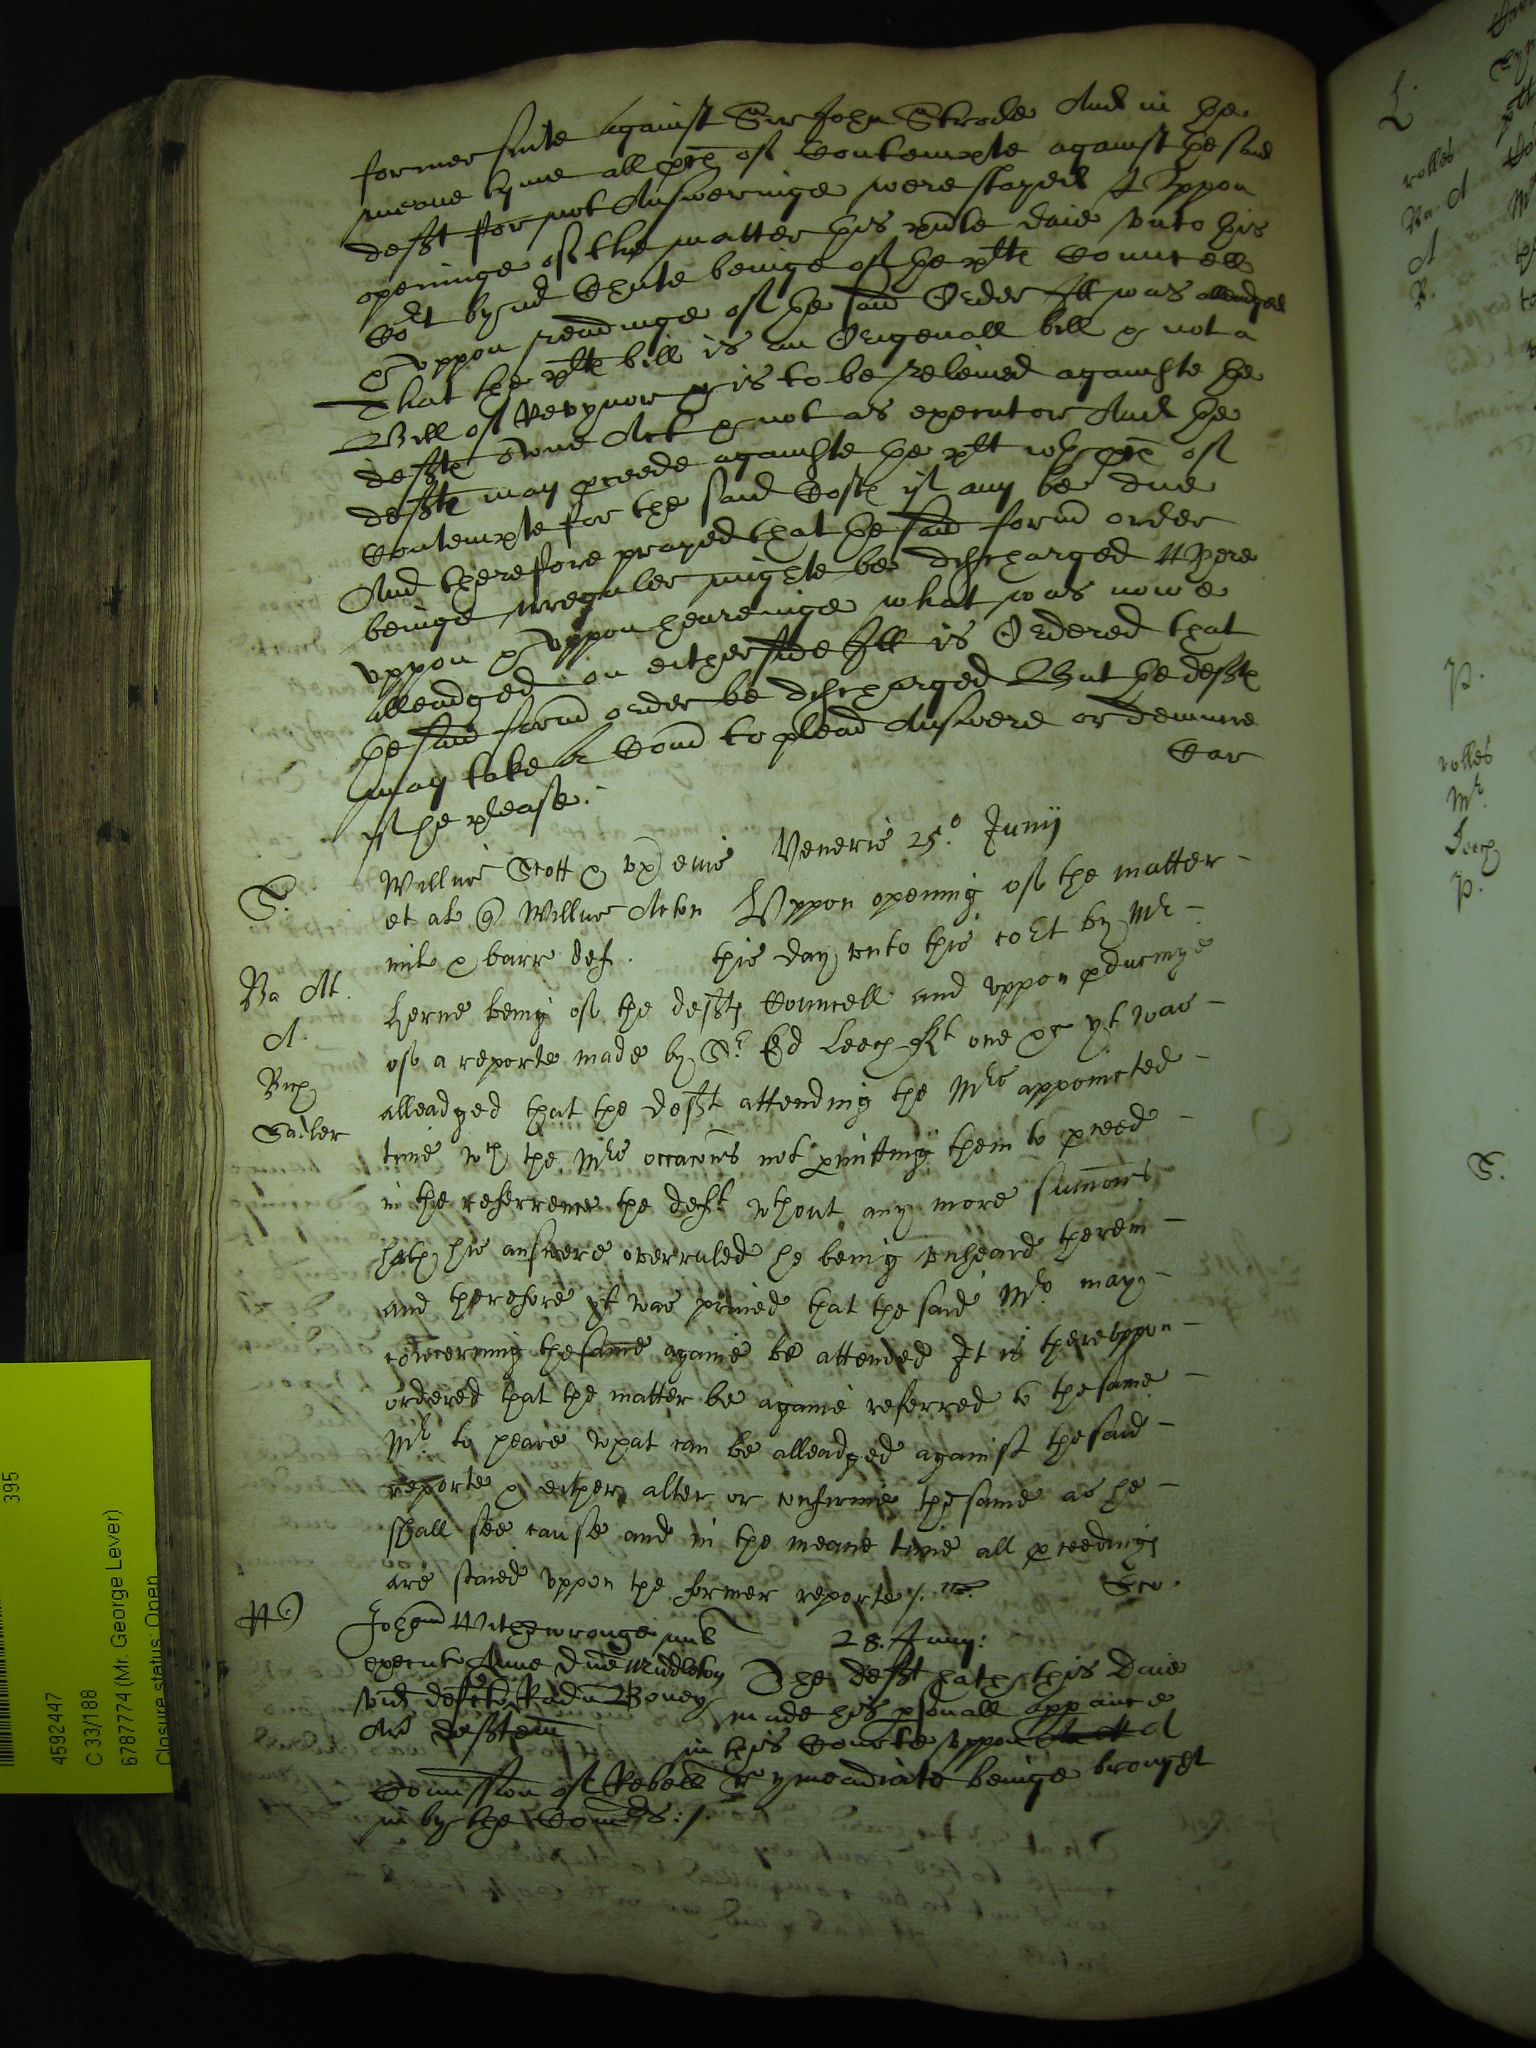 former suite against Sir John Strode And in the
meane tyme all pces of Contempte against the said
deft for not Answeringe were stayed Uppon
openinge of the matter this pnte daie unto this
Cort by mr Chute beinge of the plts Councell
& uppon readinge of the said Order Itt was alleadged
That the plts bill is an Origenall bill & not a
Bill of Revyvor & is to be releived againste the
defts owne Act & not as executor And the
defts may proceede againste the plt wth pces of
Contempte for the said Costs if any be due
And therefore prayed that the said form order
beinge irreguler mighte be discharged Where
uppon & uppon hearinge what was nowe
alleadged on either side Itt is Ordered that
the said form order be discharged But the defts
may take a Com to plead Answere or demurre
if he please.
Car
Veneris 25o Junij
S.
Willms Scott & ux eius
et al Willms Acton
milt & barr def.
Uppon opening of the matter
this day unto this cort by Mr
Ra At.
A.
Rich
Sadler
Herne being of the defts Councell and uppon pducinge
of a reporte made by Sr Ed Leech Kt one &c yt was
alleadged that the deft attending the Mrs appoincted
time wch the Mrs occacons not pmitting them to pceed
in the referrence the deft wthout any more sumons
hath his answere overruled he being unheard therein
and therefore yt was praied that the said Mr may
concerning the same againe be attended It is thereuppon
ordered that the matter be againe referred to the same
Mr to heare what can be alleadged against the said
reporte & either alter or confirme the same as he
shall see cause and in the meane time all pceedings
are staied uppon the former reporte /.
Sco.
W
Johem Wittewronge milt
execut Anne dne Middleton
vid def Radu Boney
Ar deftem
28. Junij:
The deft hath this Daie
made his psonall appance
in this Courte uppon A
Comission of Rebell ymeadiate beinge brought
in by the Comrs: /.
395
4592447
C 33/188
6787774 (Mr. George Lever)
Closure status: Open
L.
rolles
Ra. A
A
R.
P.
rolles
Mr.
Leech
P.
S.